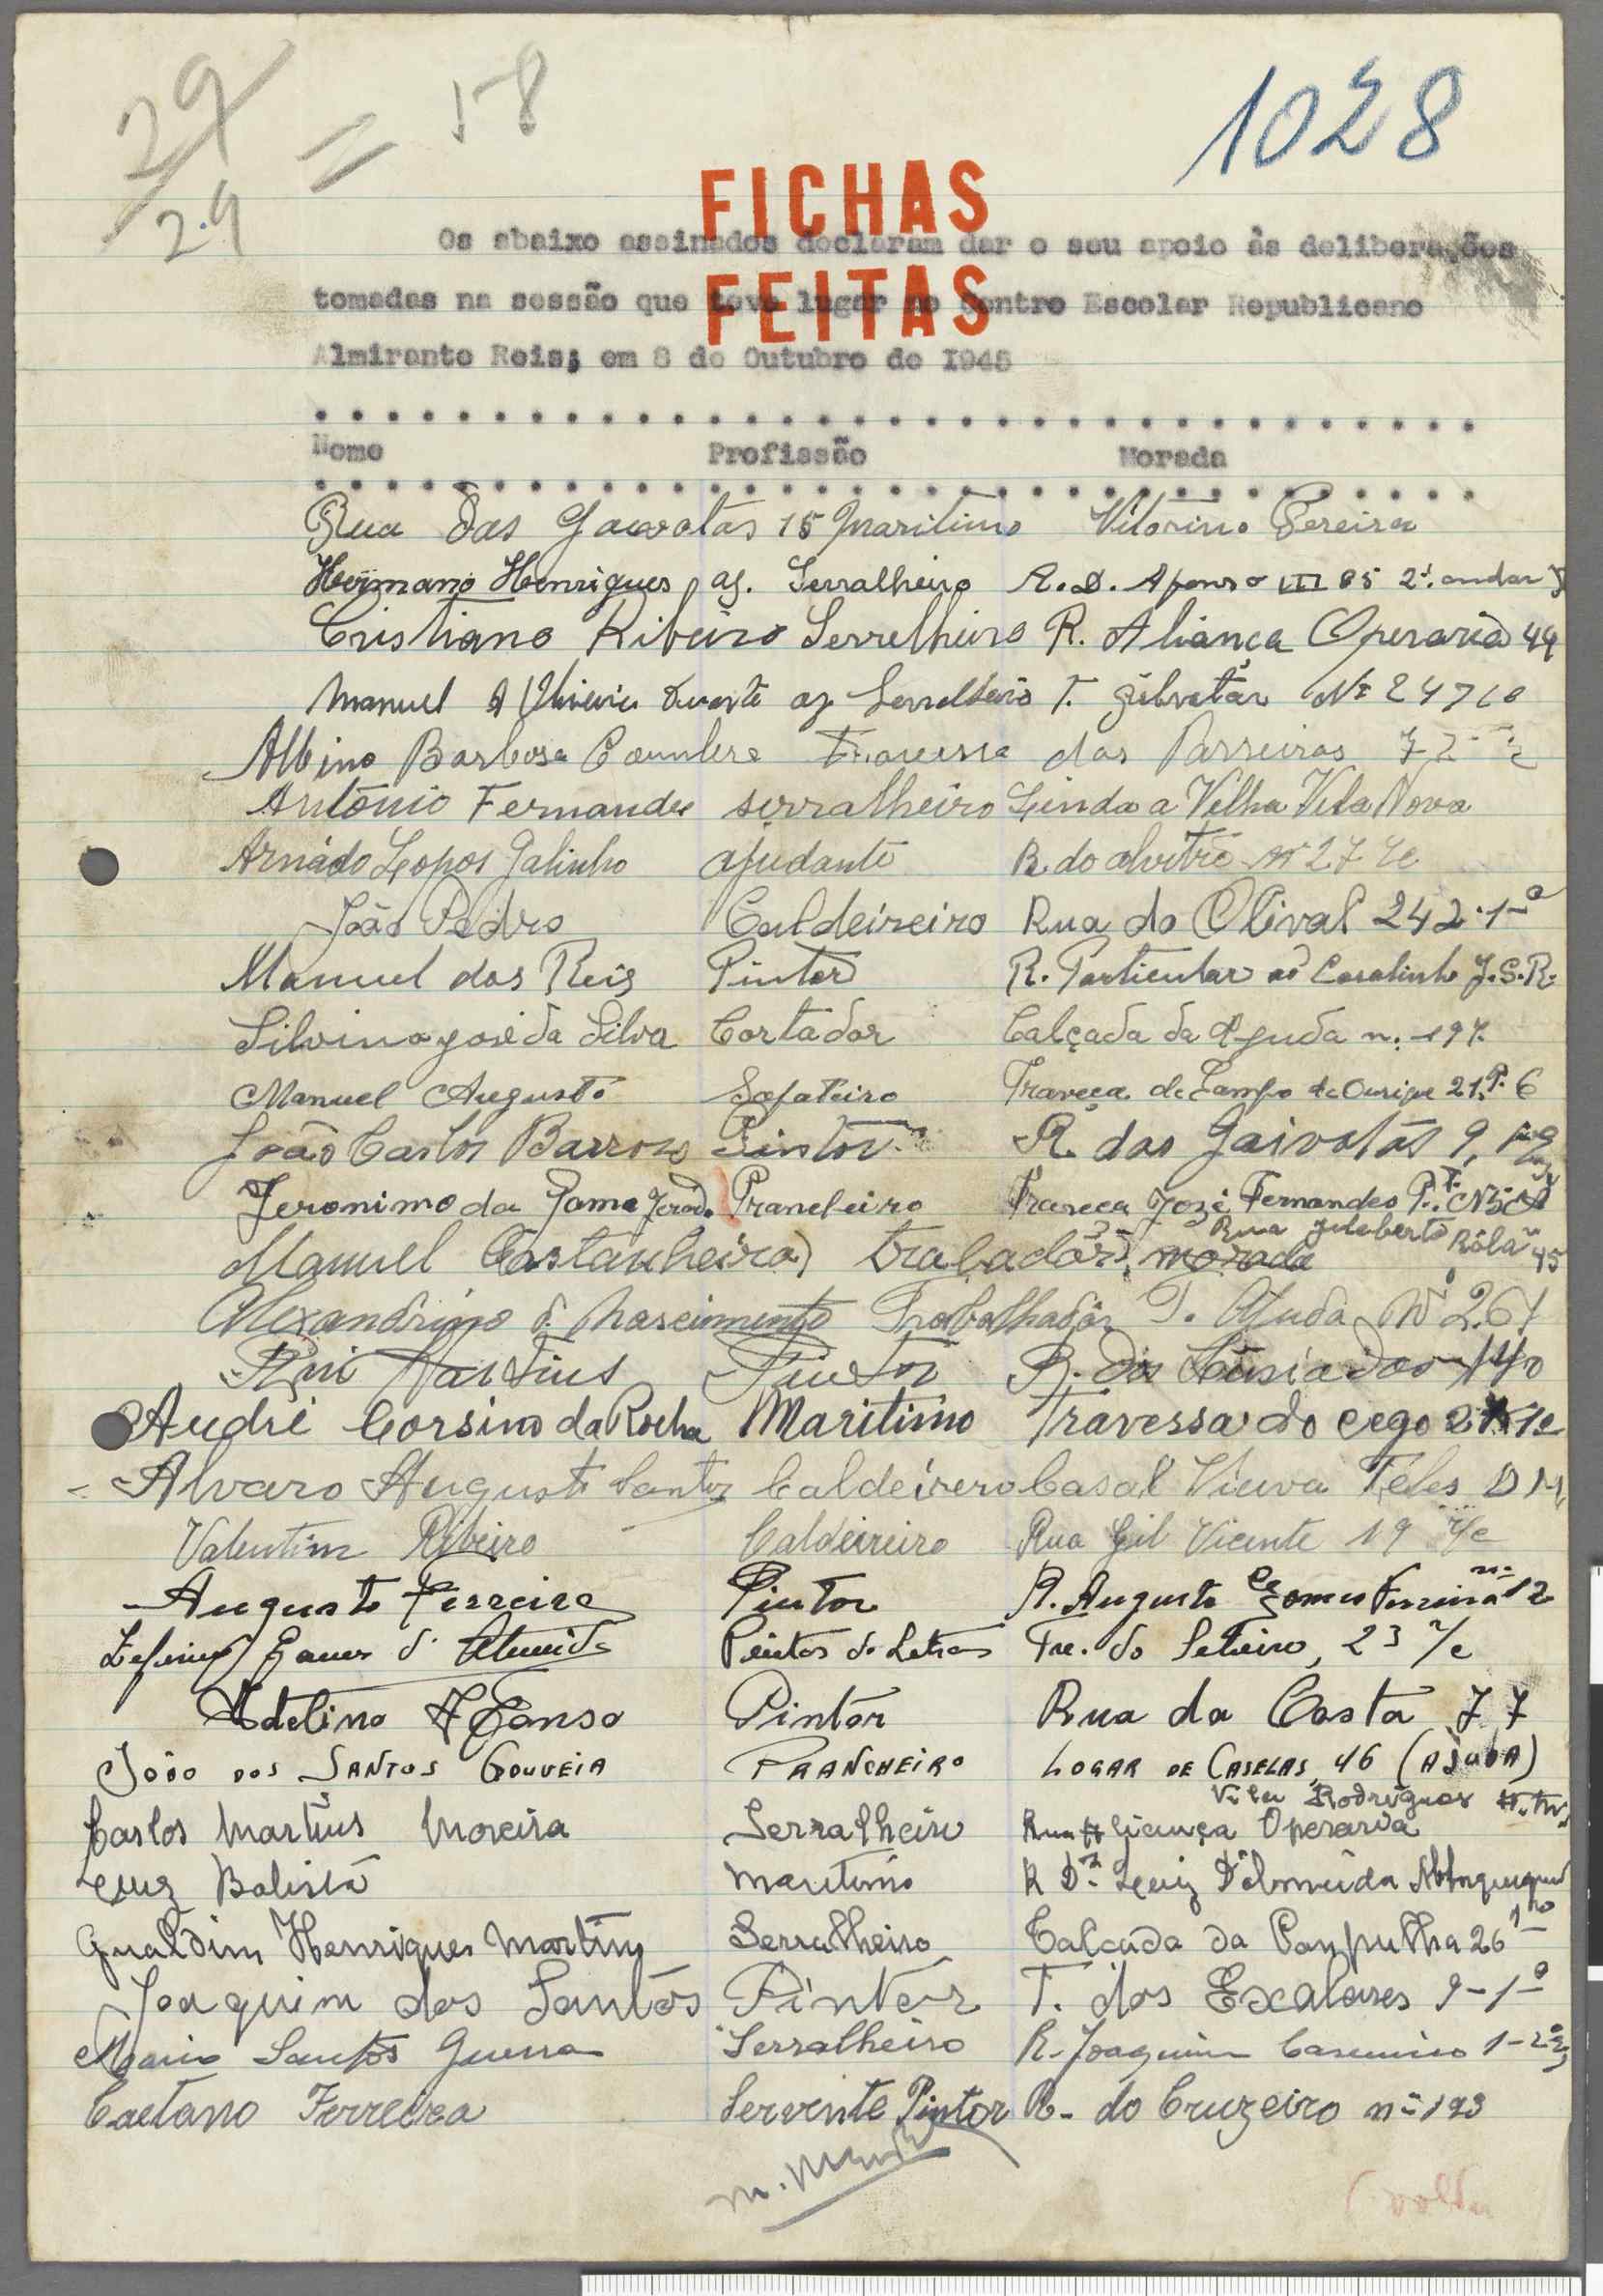 29/29 = 58
1028
FICHAS
FEITAS
Os abaixo assinados declaram dar o seu apoio às deliberações
tomadas na sessão que teve lugar no Centro Escolar Republicano
Almirante Reis; em 8 de Outubro de 1945
Nome Profissão Morada
Rua das Gaivotas 15 Maritimo Vitorino Pereira
Hermano Henriques aj. Serralheiro R. D. Afonso III 85 2º. andar
Cristiano Ribeiro Serrelheiro R. Aliança Operaria 44
Manuel Duarte aj Serralheiro T. Nº 24
Albino Barbosa Travessa das Parreiras 72
António Fernandes serralheiro Linda a Velha Vila Nova
Arnádo Lopos Galinho ajudante R. do alvitre nº 27 r/c
João Pedro Caldeireiro Rua do Olival 242-1º
Manuel dos Reis Pintor R. Particular ao Casalinho J.S.R.
Silvino José da Silva Cortador Calçada da Ajuda n. 197.
Manuel Augusto Sapateiro Traveça de Campo de Ourique 21
João Carlos Barroso Pintor R. das Gaivotas 9,
Jeronimo da Gama Prancheiro Traveça Jozé Fernandes
Manuel Castanheira trabador morada Rua 45
Alexandrino d. Nascimento Trabalhador T. Ajuda Nº 267
Rui Martins Pintor R. dos Lusiadas 140
André Corsino da Rocha Maritimo Travessa do cego
Alvaro Augusto Santos Caldeirero Casal Viuva Teles
Valentim Ribeiro Caldeireiro Rua Gil Vicente 19 r/c
Augusto Ferreira Pintor R. Augusto Gomes Ferreira nº 12
Zeferino d' Almeida Pintor de Letras Tre. do 23 r/c
Adelino Afonso Pintor Rua da Costa 77
João dos Santos Gouveia Prancheiro Logar de Caselas, 46 (Ajuda)
Carlos Martins Moreira Serralheiro Rua Aliança Operaria Vila Rodrigues
Luiz Batista maritimo R Dr. Luiz D'almeida Albuquerque
Gualdim Henriques Martins Serralheiro Calcada da Pampulha 26 1º
Joaquim dos Santos Pintor T. dos Escalares 9-1º
Mario Santos Guerra Serralheiro R. Joaquim Casemiro 1-2º
Caetano Ferreira Servente Pintor R. do Cruzeiro nº 193
(volta